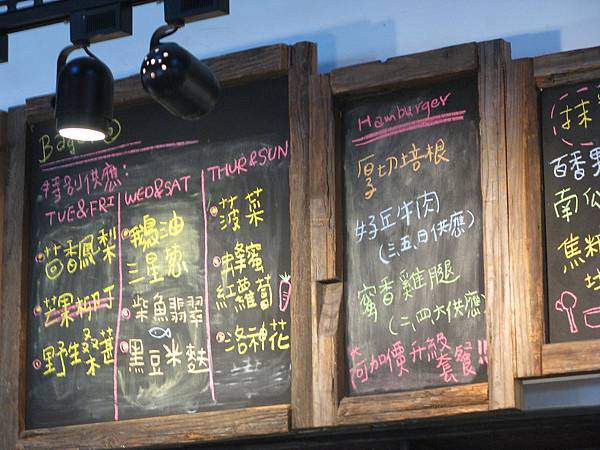 特別供應:
TUE&FRI
茴香鳳梨
芒果柳丁
野生桑葚
WED&SAT
鵝油
三星蔥
柴魚翡翠
黑豆米麩
THUR&SUN
菠菜
蜂蜜
紅蘿蔔
洛神花
Hamburger
厚切培根
好丘牛肉
(三五日供應)
蜜香雞腿
(二四六供應)
可加價升級
套餐!!
抹
百香
南
焦糖